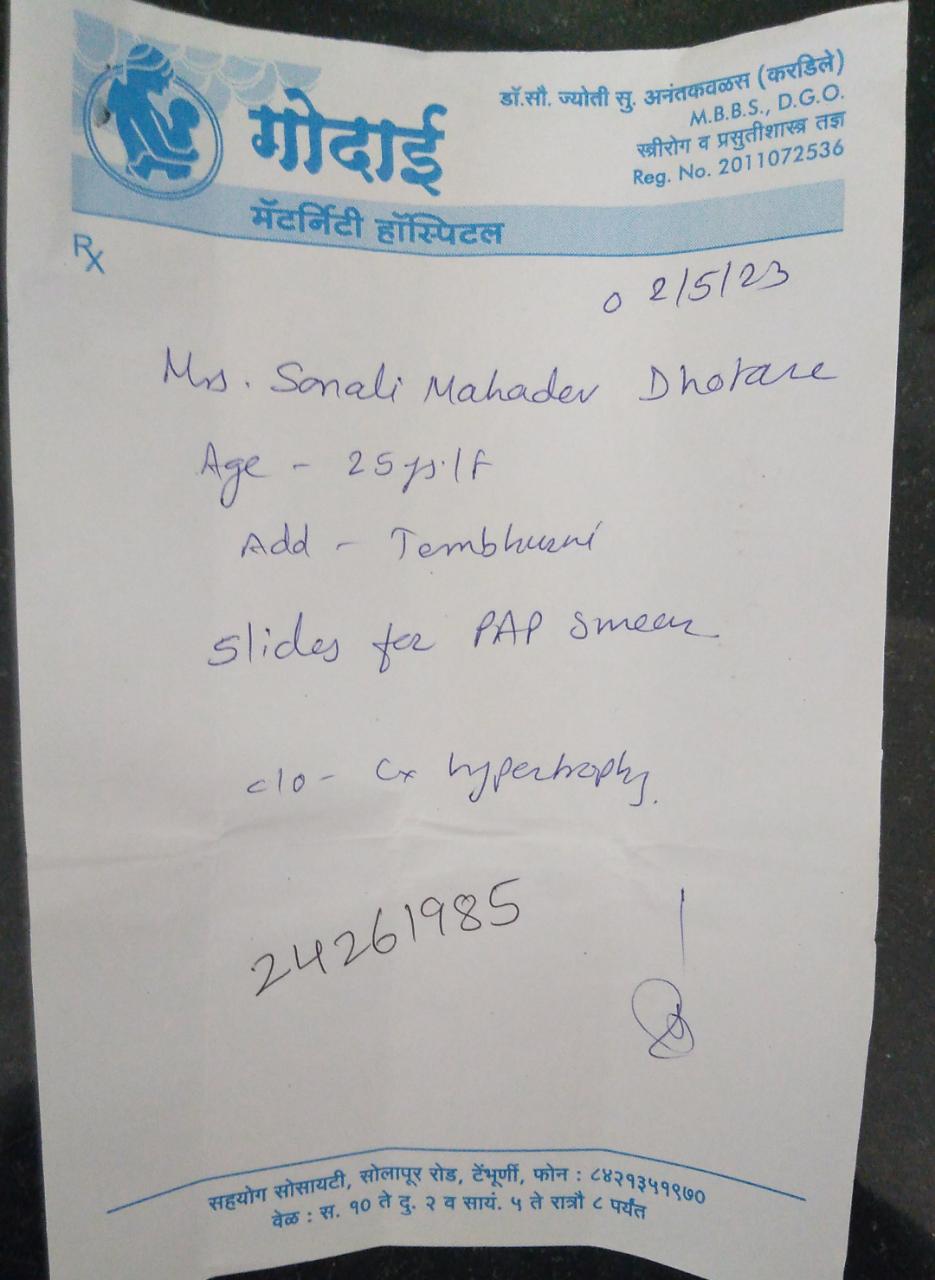 गोदाई
मॅटर्निटी हॉस्पिटल
डॉ.सौ. ज्योती सु. अनंतकवळस (करडिले)
M.B.B.S., D.G.O.
स्त्रीरोग व प्रसुतीशास्त्र तज्ञ
Reg. No. 2011072536
Rx
02/5/23
Mrs. Sonali Mahadev Dhotare
Age - 25 ys./F
Add - Tembhurni
slides for PAP smear
c/o - Cx hypertrophy.
24261985
सहयोग सोसायटी, सोलापूर रोड, टेंभूर्णी, फोन : ८४२१३५१९७०
वेळ : स. १० ते दु. २ व सायं. ५ ते रात्रौ ८ पर्यंत